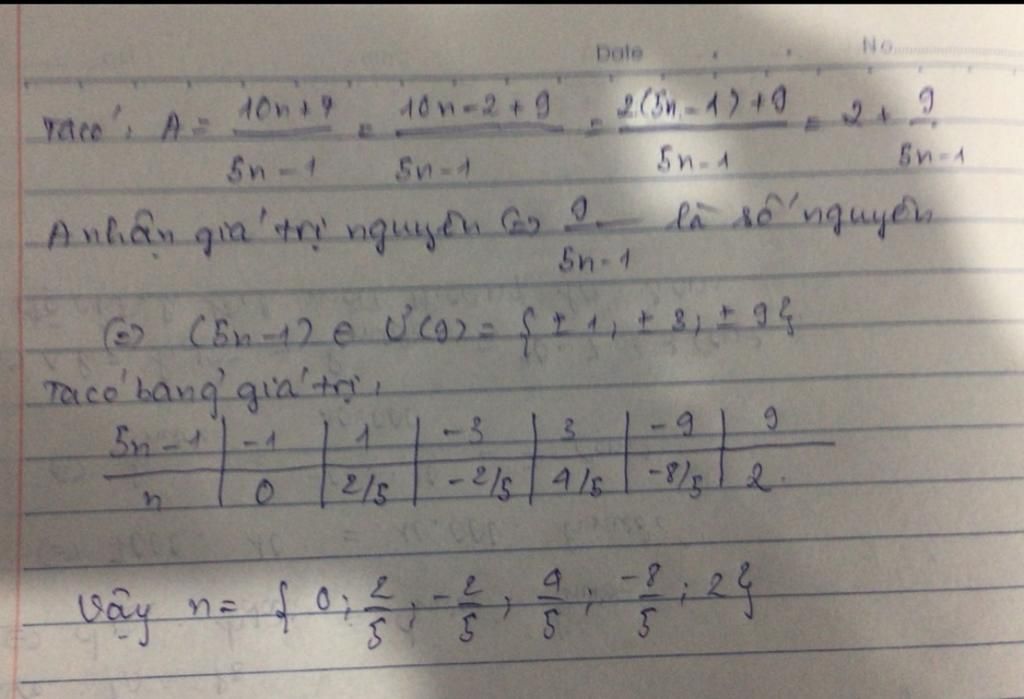 Date No
Ta có: A = (10n+7)/(5n-1) = (10n-2+9)/(5n-1) = (2(5n-1)+9)/(5n-1) = 2 + 9/(5n-1)
A nhận giá trị nguyên (=) 9/(5n-1) là số nguyên
(=) (5n-1) ∈ Ư(9) = { ±1, ±3, ±9 }
Ta có bảng giá trị:
5n-1 | -1 | 1 | -3 | 3 | -9 | 9
n | 0 | 2/5 | -2/5 | 4/5 | -8/5 | 2
Vậy n = { 0; 2/5; -2/5; 4/5; -8/5; 2 }